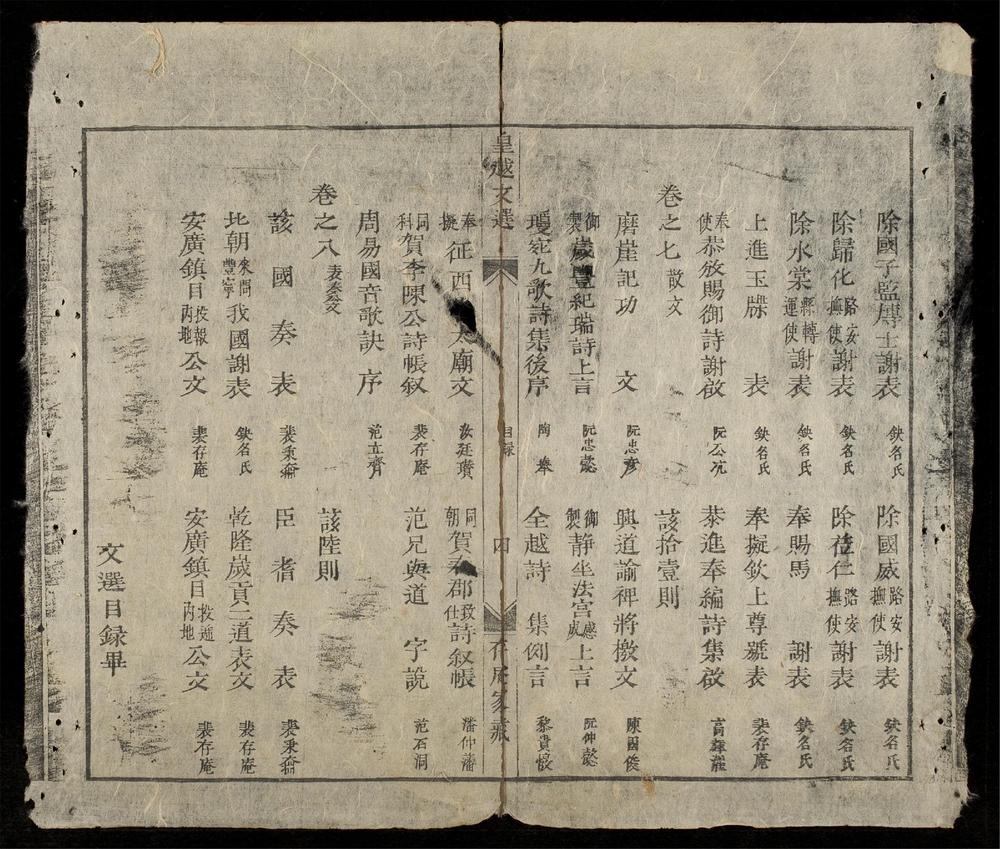 除國子監博士謝表 鈌名氏 除國威路安撫使謝表 鈌名氏
除歸化路安撫使謝表 鈌名氏 除莅仁路安撫使謝表 鈌名氏
除水棠縣轉運使謝表 鈌名氏 奉賜馬謝表 鈌名氏
上進玉牒表 鈌名氏 奉擬欽上尊號表 裴存庵
奉使恭放賜御詩謝啟 阮公沆 恭進奉編詩集啟
卷之七散文 該拾壹則
磨崖記功文 阮忠彥 興道諭裨將檄文 陳國俊
御製歲豐紀瑞詩上言 阮忠懿 御製静坐法宫感上言 阮仲懿
瓊苑九歌詩集後序 陶奉 全越詩集例言 黎貴惇
皇越文選 目録 四 存庵家藏
奉擬征西太廟文 汝廷瓚 同朝賀郡致仕詩叙帳 潘仲藩
同科賀李陳公詩帳叙 裴存庵 范兄與道字說 范石洞
周易國音歌訣序 范立齋
卷之八表奏公文 該陸則
該國奏表 裴秉崙 臣耆奏表 裴秉崙
北朝來問豐寧我國謝表 鈌名氏 乾隆歲貢二道表文 裴存庵
安廣鎮目投報内地公文 裴存庵 安廣鎮目投遞内地公文 裴存庵
文選目録畢